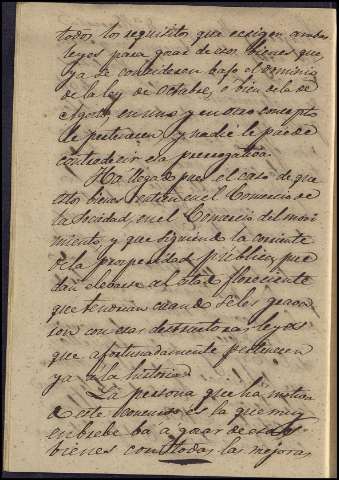 todos los requisitos que ecsigen ambas
leyes para gozar de esos bienes que
ya se consideren bajo el dominio
de la ley de Octubre, o bien de la de
Agosto, en uno y en otro concepto
le pertenecen y nadie le puede
contradecir esa prerrogativa.
Ha llegado pues el caso de que
estos bienes entren en el Comercio de
la Sociedad, en el Comercio del movi
miento, y que siguiendo la corriente
de la prosperidad pública, pue
dan elebarse al estado floreciente
que tendrian cuando se les grava
ron con esas destructoras leyes
que afortunadamente pertenecen
ya a la historia.
La persona que ha motiva
do este es la que muy
en brebe ba a gozar de esos
bienes con todas las mejoras